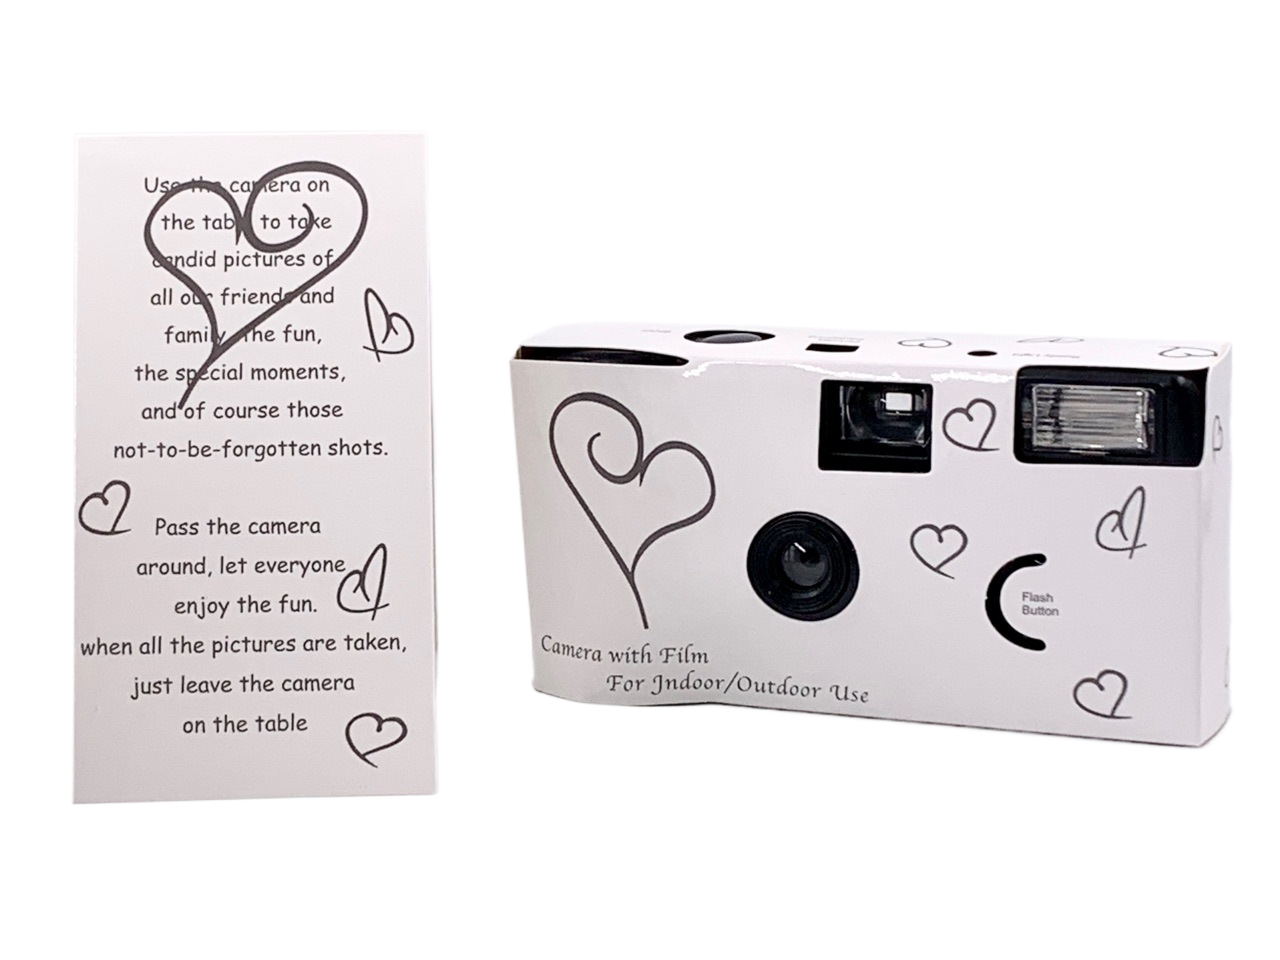 Use the camera on
the table to take
candid pictures of
all our friends and
family the fun,
the special moments,
and of course those
not-to-be-forgotten shots.
Pass the camera
around, let everyone
enjoy the fun.
when all the pictures are taken,
just leave the camera
on the table
Flash
Button
Camera with Film
For Indoor/Outdoor Use